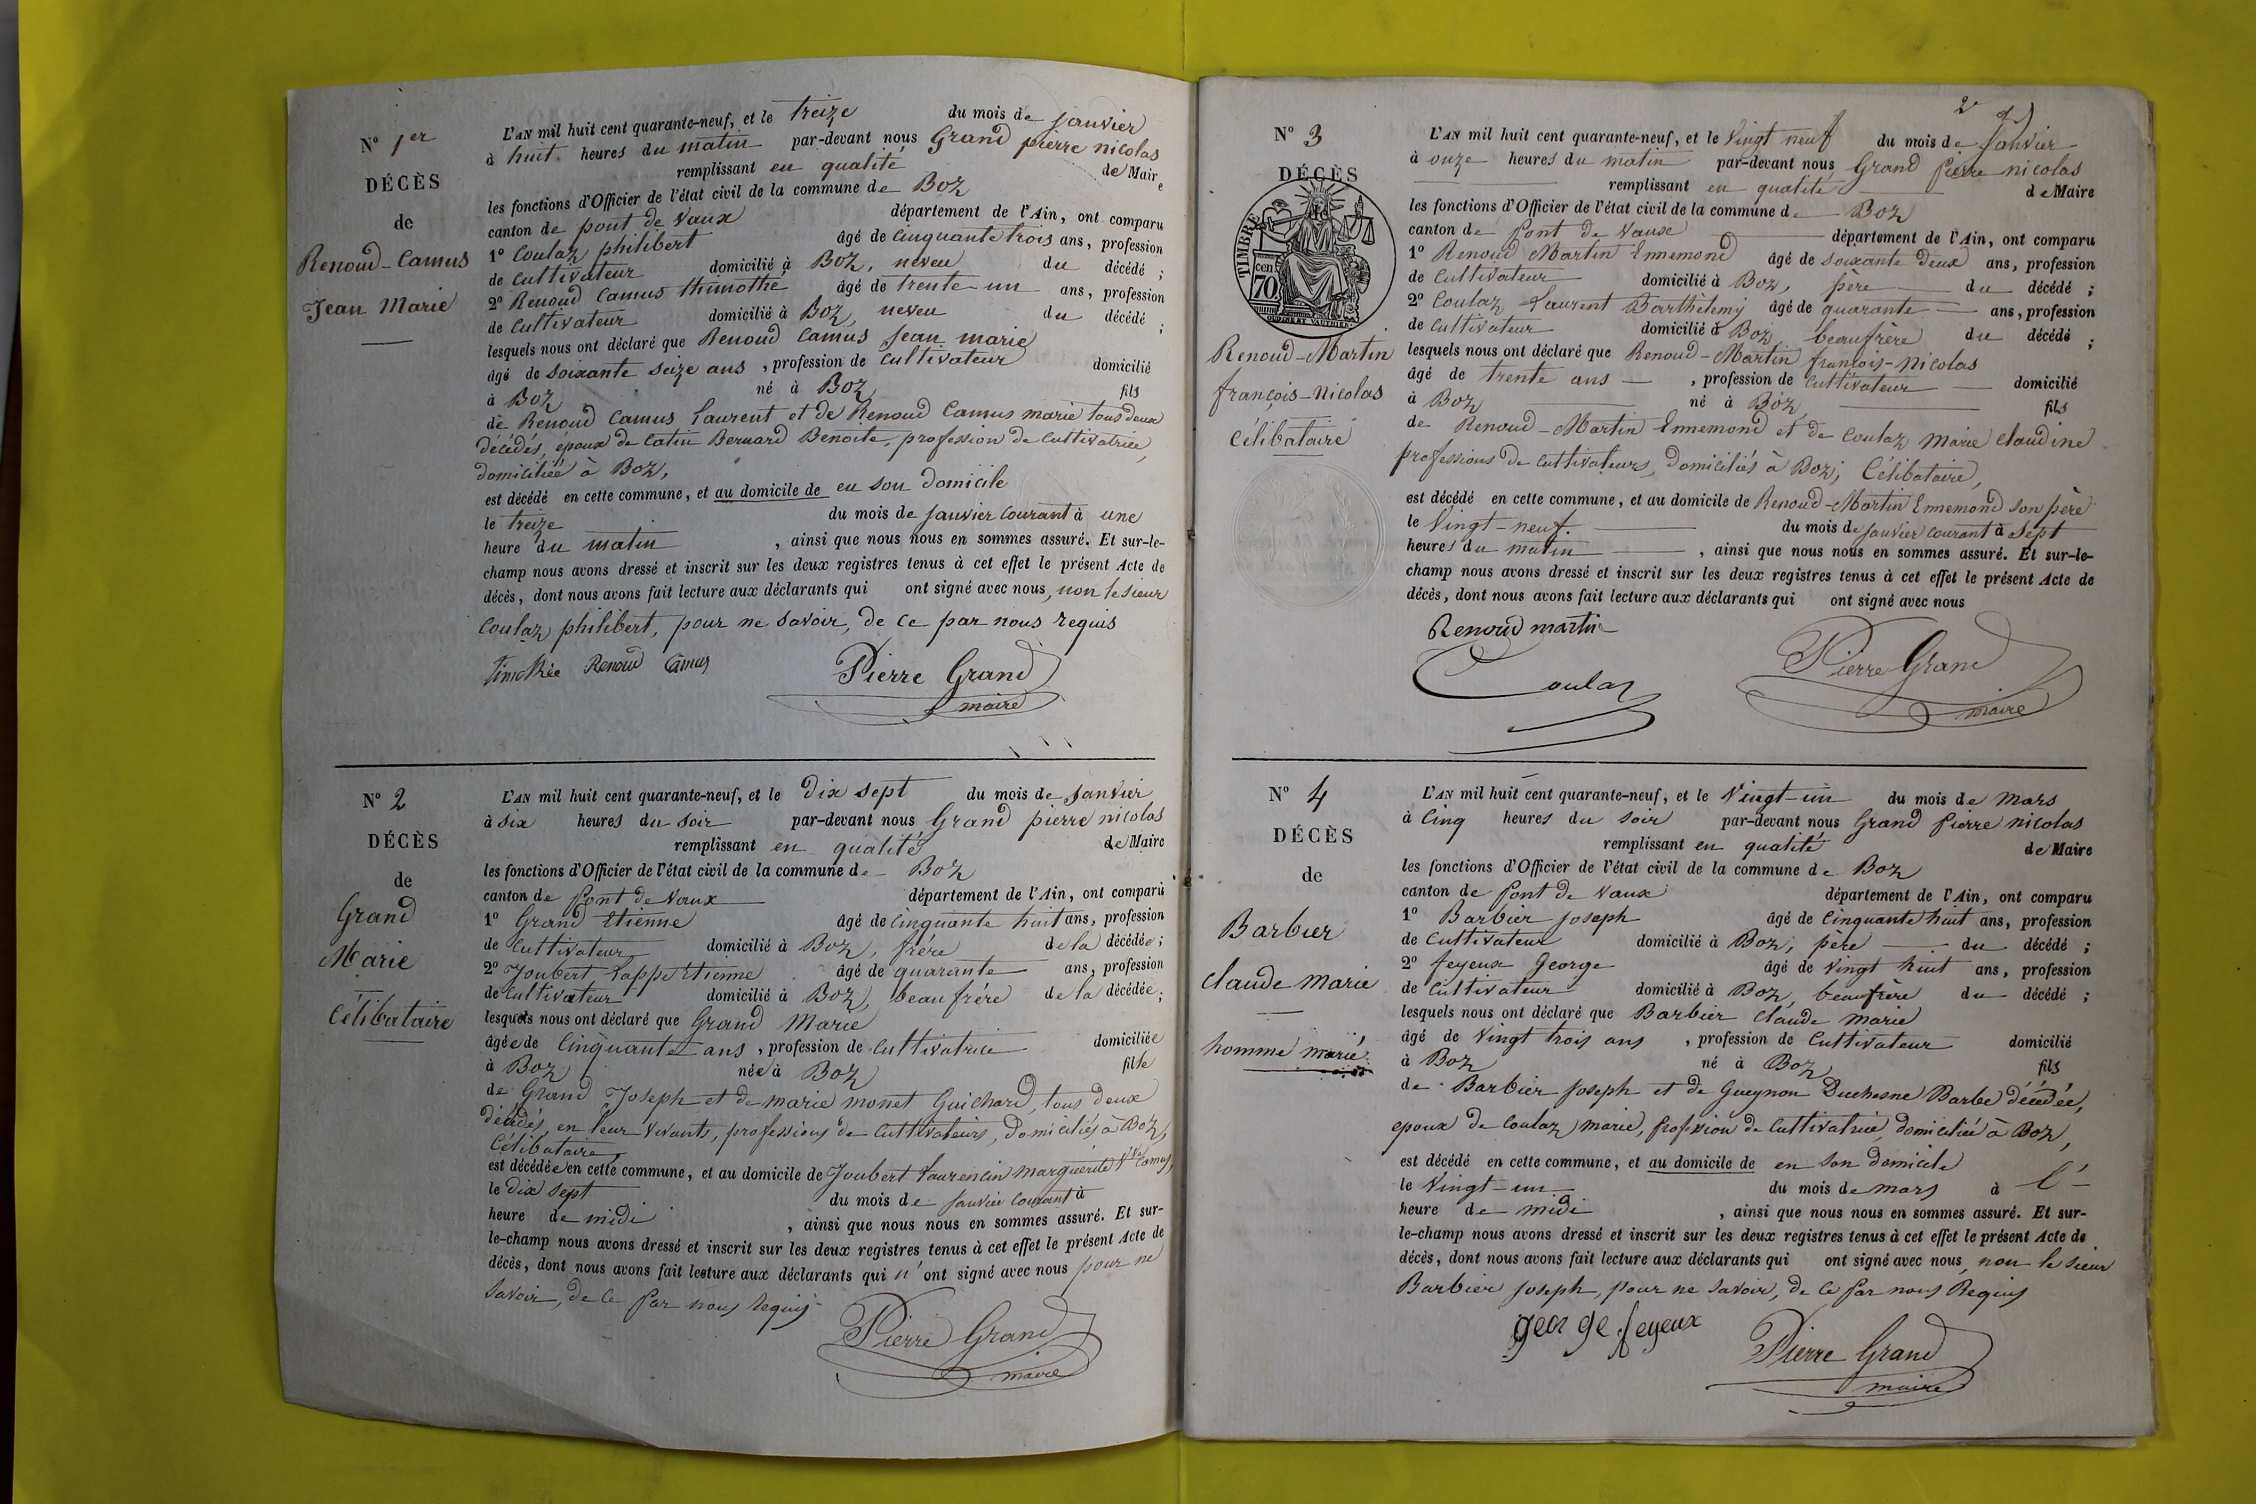 N° 1er
DÉCÈS
de
Renoud-Camus
Jean Marie
L'AN mil huit cent quarante-neuf, et le treize du mois de janvier
à huit heures du matin par-devant nous Grand pierre nicolas
remplissant en qualité de Maire
les fonctions d'Officier de l'état civil de la commune de Boz
canton de pont de Vaux département de l'Ain, ont comparu
1° Coulaz philibert âgé de Cinquante trois ans, profession
de Cultivateur domicilié à Boz, neveu du décédé ;
2° Renoud Camus thimothé âgé de trente-un ans, profession
de Cultivateur domicilié à Boz, neveu du décédé ;
lesquels nous ont déclaré que Renoud Camus Jean marie
âgé de soixante seize ans, profession de Cultivateur domicilié
à Boz né à Boz fils
de Renoud Camus Laurent et de Renoud Camus marie tous deux
décédés, époux de Catin Bernard Benoite, profession de Cultivatrice,
domiciliée à Boz,
est décédé en cette commune, et au domicile de en son domicile
le treize du mois de janvier courant à une
heure du matin, ainsi que nous nous en sommes assuré. Et sur-le-
champ nous avons dressé et inscrit sur les deux registres tenus à cet effet le présent Acte de
décès, dont nous avons fait lecture aux déclarants qui ont signé avec nous, non le sieur
Coulaz philibert, pour ne savoir, de ce par nous requis
timothée Renoud Camus Pierre Grand
maire
N° 2
DÉCÈS
de
Grand
Marie
Célibataire
L'AN mil huit cent quarante-neuf, et le dix sept du mois de janvier
à six heures du soir par-devant nous Grand pierre nicolas
remplissant en qualité de Maire
les fonctions d'Officier de l'état civil de la commune de Boz
canton de Pont de Vaux département de l'Ain, ont comparu
1° Grand Etienne âgé de cinquante huit ans, profession
de Cultivateur domicilié à Boz, frére de la décédée ;
2° Joubert Lappe Etienne âgé de quarante ans, profession
de Cultivateur domicilié à Boz, beau frére de la décédée ;
lesquels nous ont déclaré que Grand Marie
âgée de Cinquante ans, profession de Cultivatrice domiciliée
à Boz née à Boz fille
de Grand Joseph et de marie monet Guichard, tous deux
décédés, en leur vivants, professions de Cultivateurs, domiciliés à Boz,
Célibataire
est décédée en cette commune, et au domicile de Joubert Laurencin marguerite Vve Camus,
le dix sept du mois de janvier courant à
heure de midi, ainsi que nous nous en sommes assuré. Et sur-
le-champ nous avons dressé et inscrit sur les deux registres tenus à cet effet le présent Acte de
décès, dont nous avons fait lecture aux déclarants qui n'ont signé avec nous pour ne
savoir, de ce par nous requis
Pierre Grand
maire
2e
N° 3
DÉCÈS
TIMBRE
70 cen
OUDINÉ ET VAUTHIER
Renoud-Martin
françois-nicolas
Célibataire
L'AN mil huit cent quarante-neuf, et le vingt neuf du mois de Janvier
à onze heures du matin par-devant nous Grand pierre nicolas
remplissant en qualité de Maire
les fonctions d'Officier de l'état civil de la commune de Boz
canton de Pont de Vaux département de l'Ain, ont comparu
1° Renoud Martin Ennemond âgé de soixante deux ans, profession
de Cultivateur domicilié à Boz, père du décédé ;
2° Coulaz Laurent Barthélemy âgé de quarante ans, profession
de Cultivateur domicilié à Boz beaufrère du décédé ;
lesquels nous ont déclaré que Renoud-Martin françois-nicolas
âgé de trente ans, profession de Cultivateur domicilié
à Boz né à Boz, fils
de Renoud-Martin Ennemond et de Coulaz Marie Claudine
professions de cultivateurs, domiciliés à Boz, Célibataire,
est décédé en cette commune, et au domicile de Renoud-Martin Ennemond son père
le vingt-neuf du mois de janvier courant à sept
heures du matin, ainsi que nous nous en sommes assuré. Et sur-le-
champ nous avons dressé et inscrit sur les deux registres tenus à cet effet le présent Acte de
décès, dont nous avons fait lecture aux déclarants qui ont signé avec nous
Renoud martin
Coulaz Pierre Grand
maire
N° 4
DÉCÈS
de
Barbier
Claude Marie
homme marié
L'AN mil huit cent quarante-neuf, et le vingt-un du mois de mars
à Cinq heures du soir par-devant nous Grand Pierre nicolas
remplissant en qualité de Maire
les fonctions d'Officier de l'état civil de la commune de Boz
canton de Pont de Vaux département de l'Ain, ont comparu
1° Barbier Joseph âgé de Cinquante huit ans, profession
de Cultivateur domicilié à Boz, père du décédé ;
2° feyeux George âgé de vingt huit ans, profession
de Cultivateur domicilié à Boz, beaufrère du décédé ;
lesquels nous ont déclaré que Barbier Claude Marie
âgé de vingt trois ans, profession de Cultivateur domicilié
à Boz né à Boz, fils
de Barbier Joseph et de Gueynon Duchesne Barbe décédée,
epoux de Coulaz marie, profession de Cultivatrice, domiciliée à Boz,
est décédé en cette commune, et au domicile de en son domicile
le vingt-un du mois de mars à l'
heure de midi, ainsi que nous nous en sommes assuré. Et sur-
le-champ nous avons dressé et inscrit sur les deux registres tenus à cet effet le présent Acte de
décès, dont nous avons fait lecture aux déclarants qui ont signé avec nous, non le sieur
Barbier Joseph, pour ne savoir, de ce par nous Requis
george feyeux Pierre Grand
maire